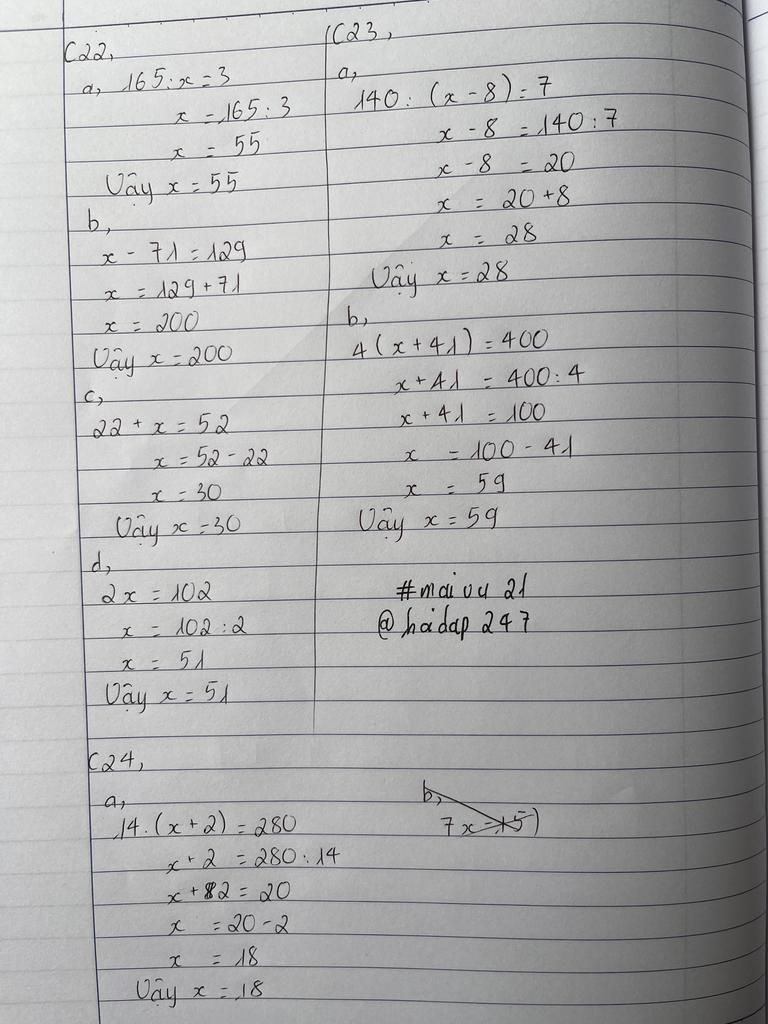 C22,
a, 165 : x = 3
x = 165 : 3
x = 55
Vậy x = 55
b,
x - 71 = 129
x = 129 + 71
x = 200
Vậy x = 200
c,
22 + x = 52
x = 52 - 22
x = 30
Vậy x = 30
d,
2x = 102
x = 102 : 2
x = 51
Vậy x = 51
C23,
a,
140 : (x - 8) = 7
x - 8 = 140 : 7
x - 8 = 20
x = 20 + 8
x = 28
Vậy x = 28
b,
4(x + 41) = 400
x + 41 = 400 : 4
x + 41 = 100
x = 100 - 41
x = 59
Vậy x = 59
#maivu 21
@hỏidap 247
C24,
a,
14.(x + 2) = 280
x + 2 = 280 : 14
x + 2 = 20
x = 20 - 2
x = 18
Vậy x = 18
b,
7x - 15)